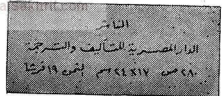 الناشر
الدار المصرية للتأليف والترجمة
٢٨٠ ص ١٧×٢٤ سم الثمن ١٩ قرشا